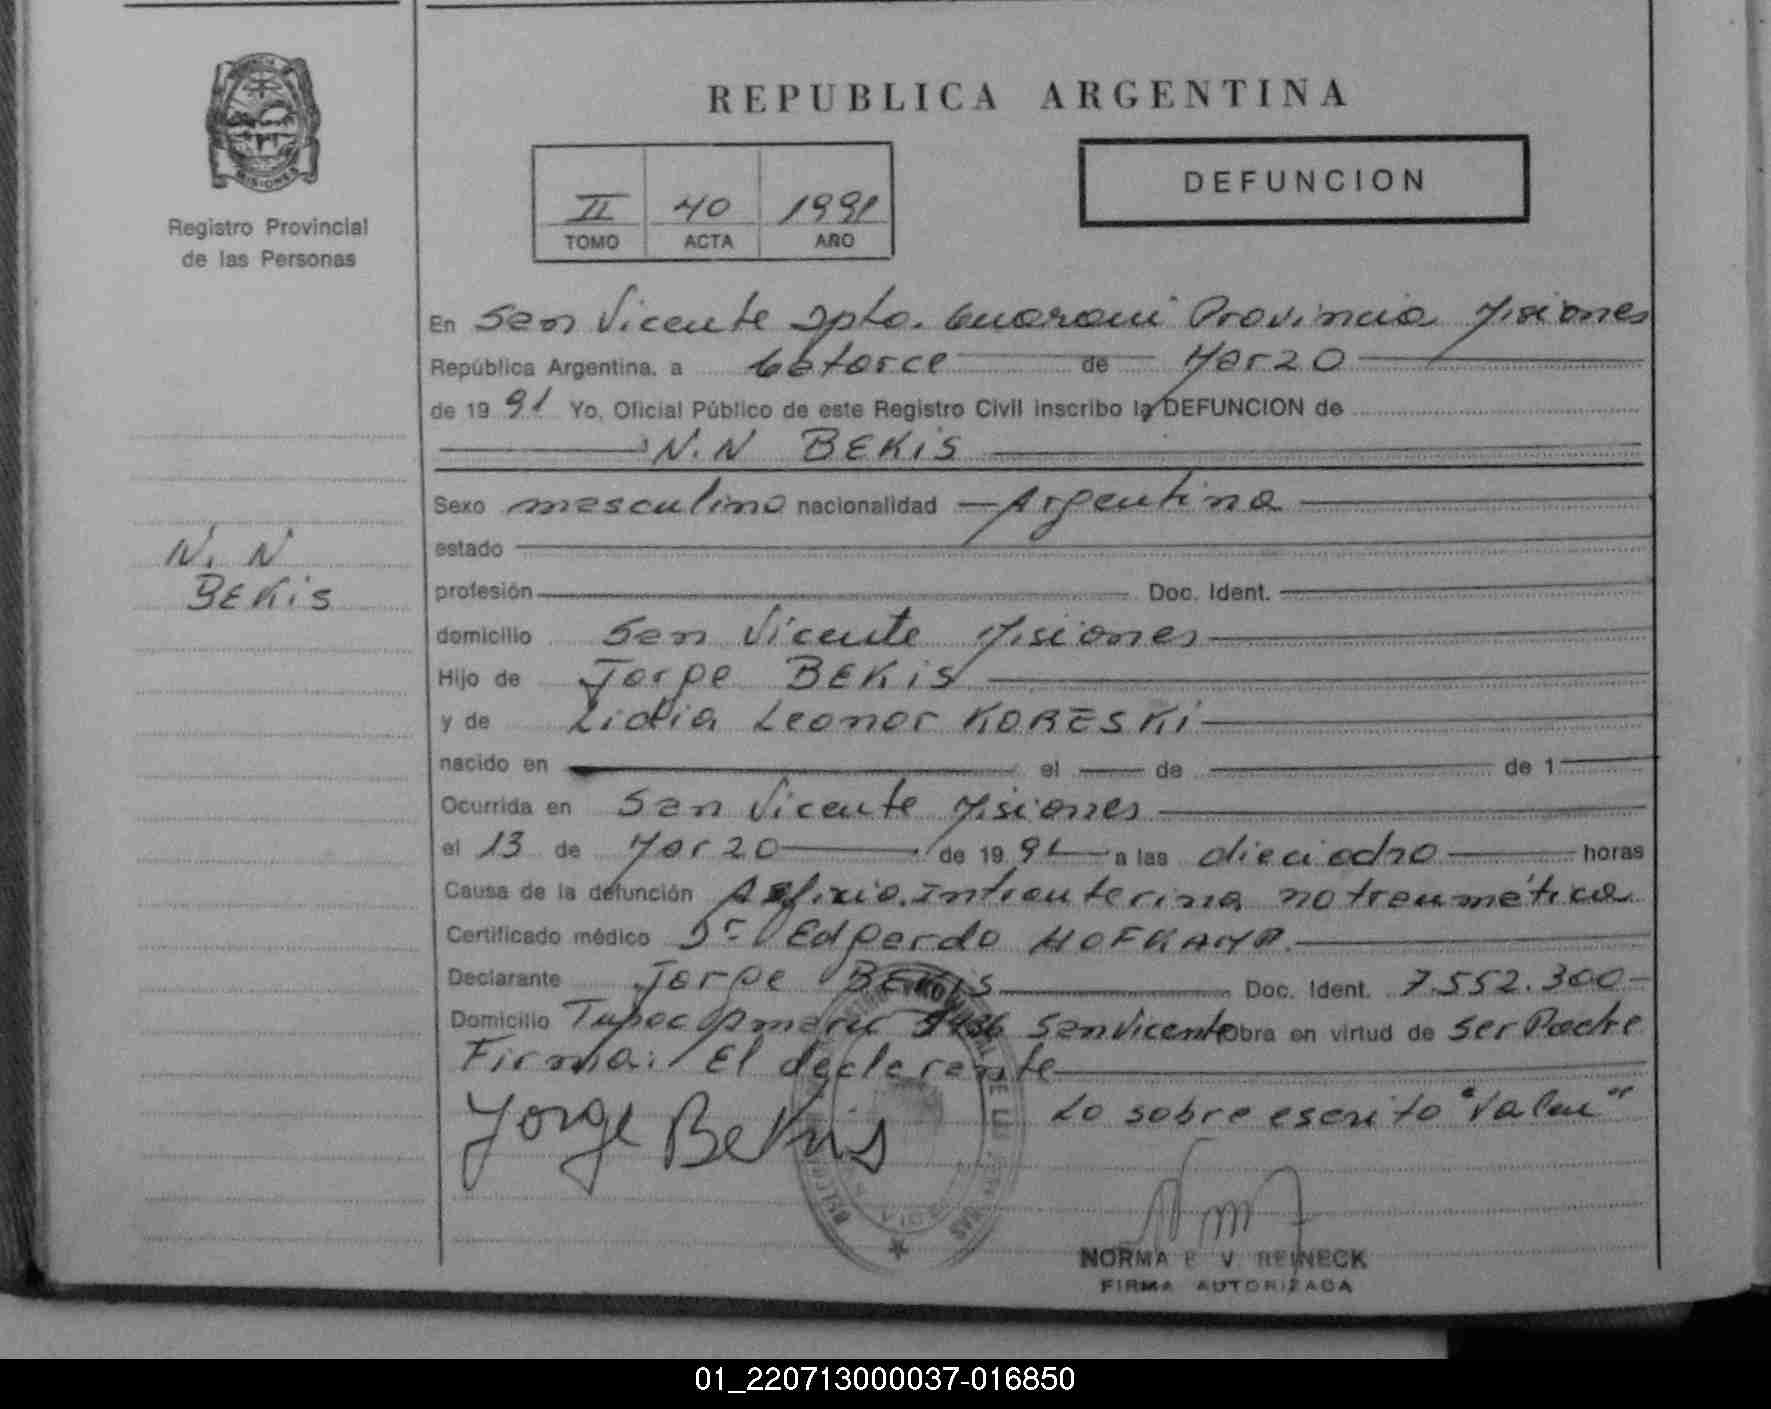 REPUBLICA ARGENTINA
MISIONES
Registro Provincial
de las Personas
II 40 1991
TOMO ACTA AÑO
DEFUNCION
En San Vicente Dpto. Guarani Provincia Misiones
República Argentina, a Catorce de Marzo
de 19 91 Yo, Oficial Público de este Registro Civil inscribo la DEFUNCION de
N.N BEKiS
Sexo masculino nacionalidad Argentina
estado
N. N
BEKiS
profesión Doc. Ident.
domicilio San Vicente Misiones
Hijo de Jorge BEKiS
y de Lidia Leonor KORESKi
nacido en el de de 1
Ocurrida en San Vicente Misiones
el 13 de Marzo de 19 91 a las dieciocho horas
Causa de la defunción Asfixia Intrauterina no traumática
Certificado médico Dr Edgardo HOFKAMP.
Declarante Jorge BEKiS Doc. Ident. 7.552.300
Domicilio Tupac Amaru San Vicente Obra en virtud de ser Padre
Firma: El declarante
Jorge Bekis
Lo sobre escrito "Vale"
NORMA E. V. REINECK
FIRMA AUTORIZADA
01_220713000037-016850